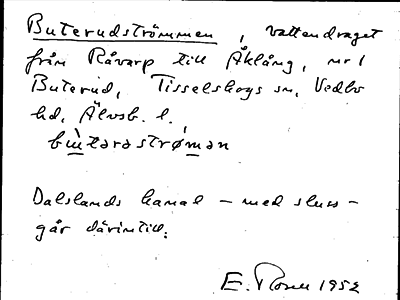 Buterudströmmen, vattendraget
från Råvarp till Åklång, nr 1
Buterud, Tisselskogs sn, Vedbo
hd, Älvsb. l.
Dalslands kanal – med sluss –
går därintill.
E. Rosell 1952